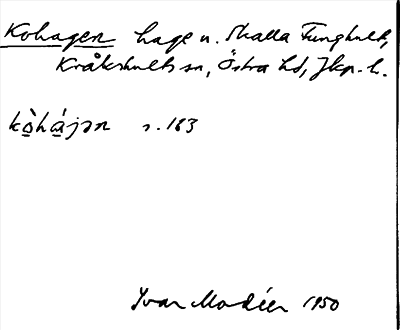 Kohagen hage u. Skalla Funghult,
Kråkshults sn, Östra hd, Jkp. l.
kọ̀hạ́jən s. 183
Ivar Modéer 1950